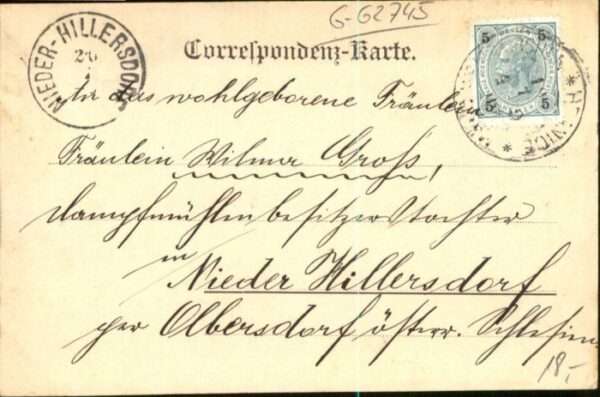 G-G2745
NIEDER-HILLERSDORF
Correspondenz-Karte.
5 5
5 5
An das wohlgeborene Fräulein
Fräulein Wilma Groß,
Dampfmühlenbesitzerstochter
in
Nieder Hillersdorf
per Olbersdorf österr. Schlesien.
18,-